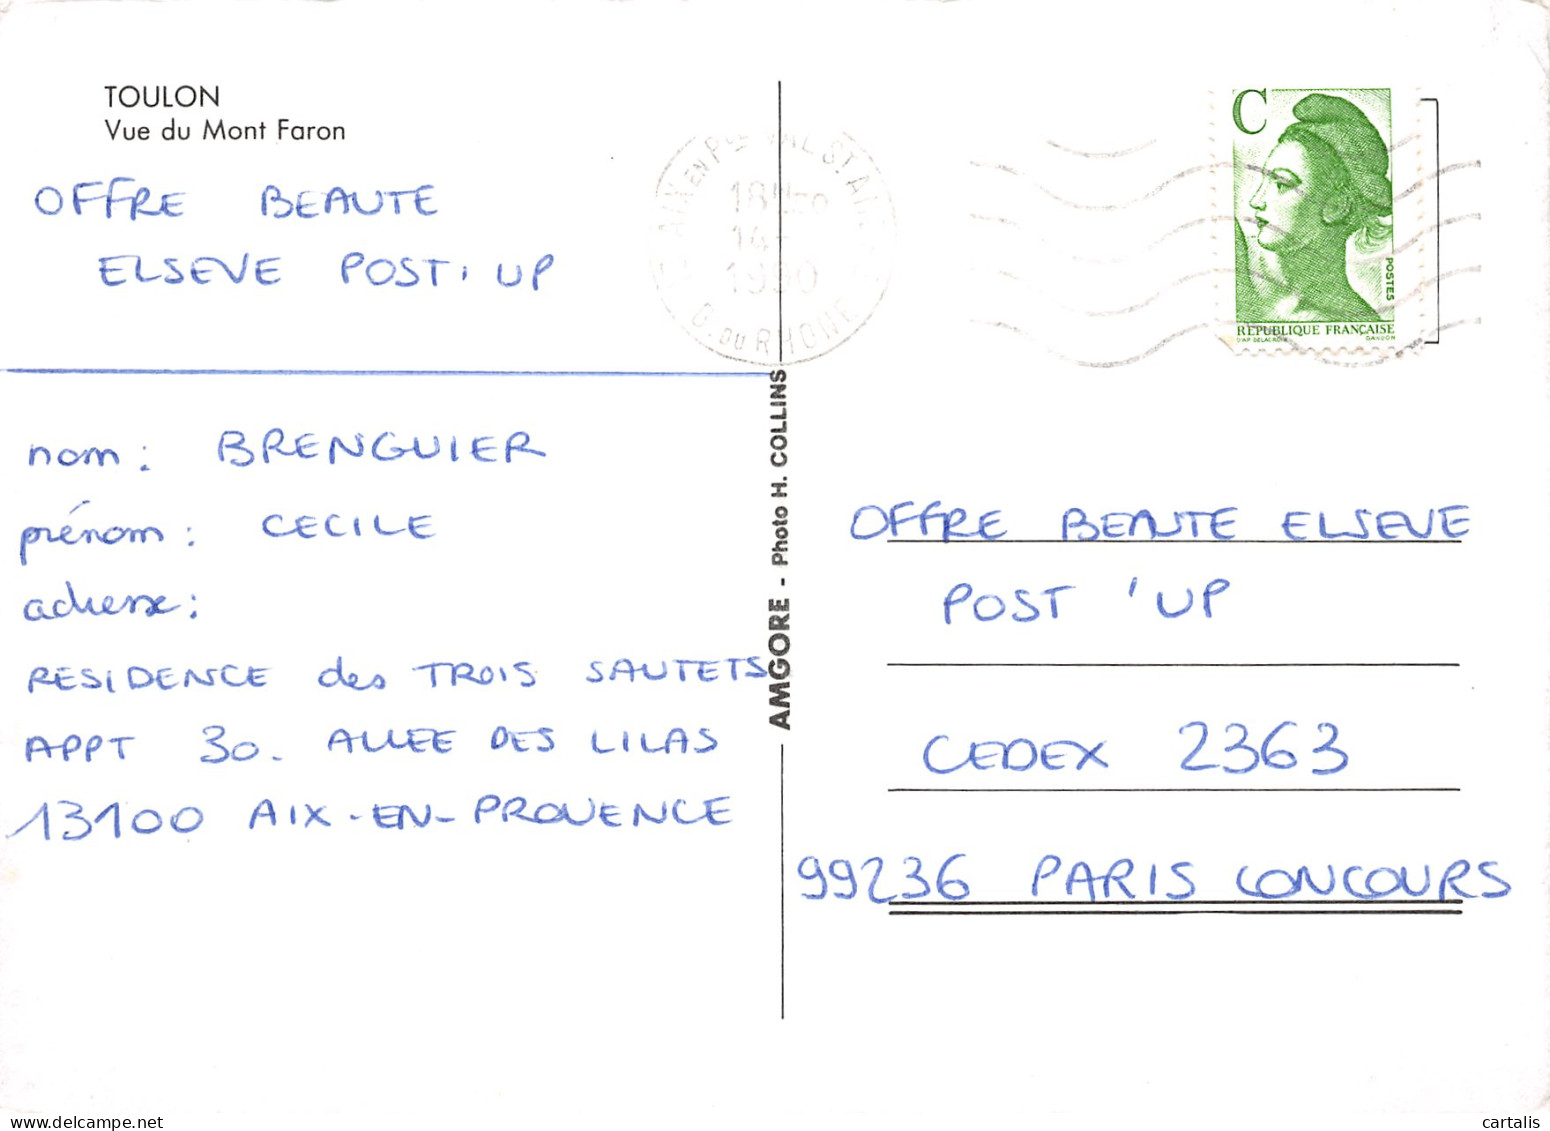 TOULON
Vue du Mont Faron
OFFRE BEAUTE
ELSEVE POST'UP
nom: BRENGUIER
prénom: CECILE
adresse:
RESIDENCE des TROIS SAUTETS
APPT 30. ALLEE DES LILAS
13100 AIX-EN-PROVENCE
AMGORE - Photo H. COLLINS
AIX EN P
18H30
14-
1990
B. DU RHONE
C
POSTES
REPUBLIQUE FRANÇAISE
D'AP DELACROIX GANDON
OFFRE BEAUTE ELSEVE
POST 'UP
CEDEX 2363
99236 PARIS CONCOURS
cartalis